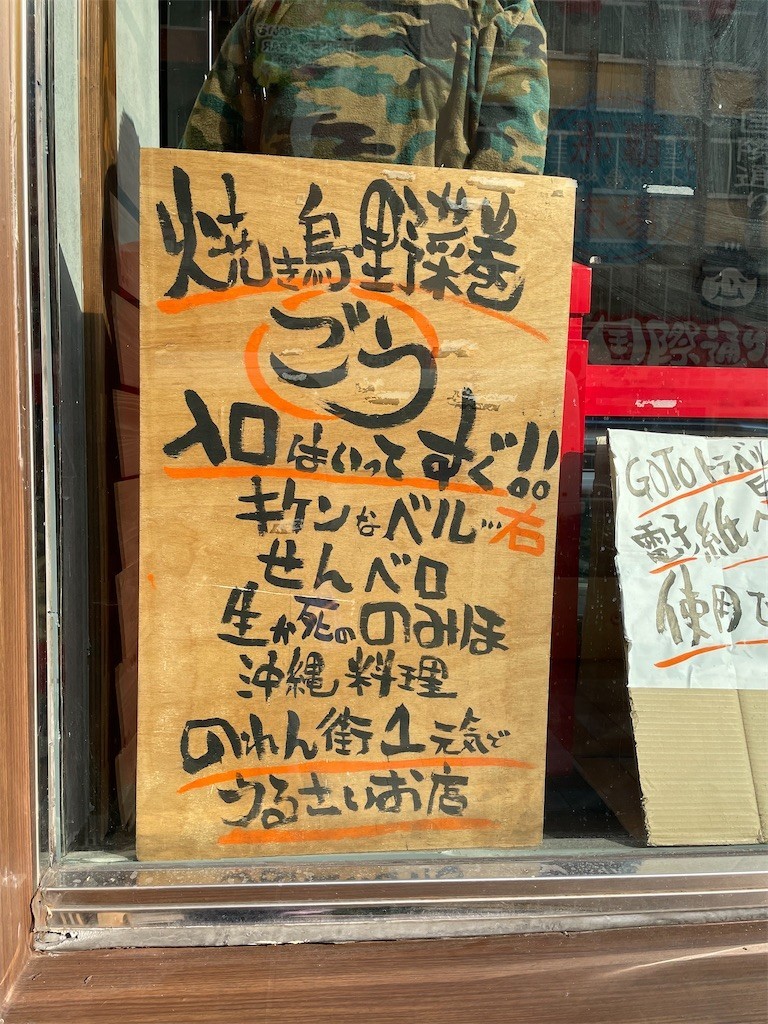 焼き鳥・野菜巻
ごう
入口はいってすぐ!!
キケンなベル…右
せんベロ
生か死の のみほ
沖縄料理
のれん街1元気で
うるさいお店
GOTOトラベル
電子
使用で
国際通り
国際通り